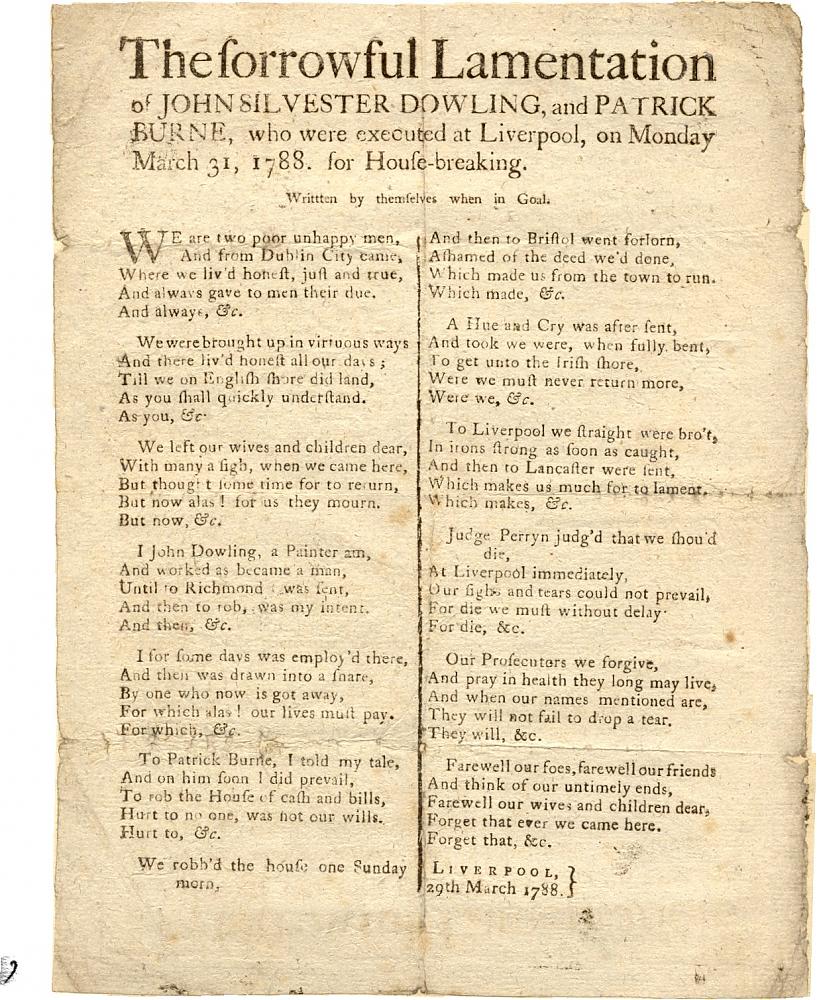 The ſorrowful Lamentation
of JOHN SILVESTER DOWLING, and PATRICK
BURNE, who were executed at Liverpool, on Monday
March 31, 1788. for Houſe-breaking.
Writtten by themſelves when in Goal.
WE are two poor unhappy men,
And from Dublin City came,
Where we liv'd honeſt, juſt and true,
And always gave to men their due.
And always, &c.
We were brought up in virtuous ways
And there liv'd honeſt all our days;
Till we on Engliſh ſhore did land,
As you ſhall quickly underſtand.
As you, &c.
We left our wives and children dear,
With many a ſigh, when we came here,
But thought ſome time for to return,
But now alas! for us they mourn.
But now, &c.
I John Dowling, a Painter am,
And worked as became a man,
Until to Richmond I was ſent,
And then to rob, was my intent.
And then, &c.
I for ſome days was employ'd there,
And then was drawn into a ſnare,
By one who now is got away,
For which alas! our lives muſt pay.
For which, &c.
To Patrick Burne, I told my tale,
And on him ſoon I did prevail,
To rob the Houſe of caſh and bills,
Hurt to no one, was not our wills.
Hurt to, &c.
We robb'd the houſe one Sunday
morn,
And then to Briſtol went forlorn,
Aſhamed of the deed we'd done,
Which made us from the town to run.
Which made, &c.
A Hue and Cry was after ſent,
And took we were, when fully bent,
To get unto the Iriſh ſhore,
Were we muſt never return more,
Were we, &c.
To Liverpool we ſtraight were bro't,
In irons ſtrong as ſoon as caught,
And then to Lancaſter were ſent,
Which makes us much for to lament.
Which makes, &c.
Judge Perryn judg'd that we ſhou'd
die,
At Liverpool immediately,
Our ſighs and tears could not prevail,
For die we muſt without delay.
For die, &c.
Our Proſecutors we forgive,
And pray in health they long may live,
And when our names mentioned are,
They will not fail to drop a tear.
They will, &c.
Farewell our foes, farewell our friends
And think of our untimely ends,
Farewell our wives and children dear,
Forget that ever we came here.
Forget that, &c.
LIVERPOOL,
29th March 1788.